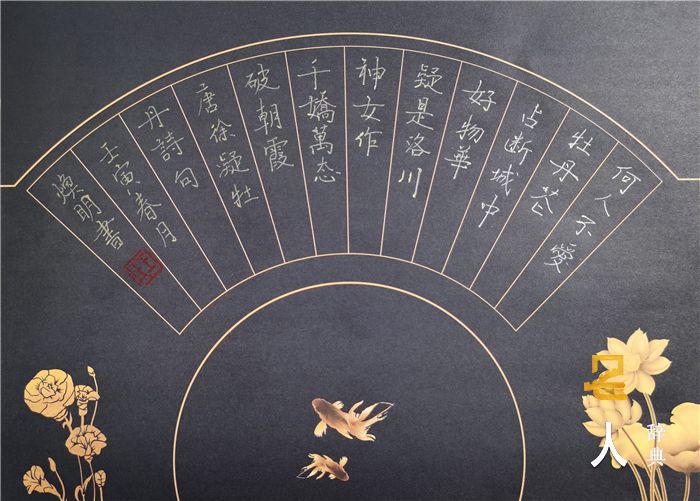 何人不愛
牡丹花
占断城中
好物華
疑是洛川
神女作
千嬌萬态
破朝霞
唐徐凝牡
丹詩句
壬寅春月
煥明書
名人
辞典